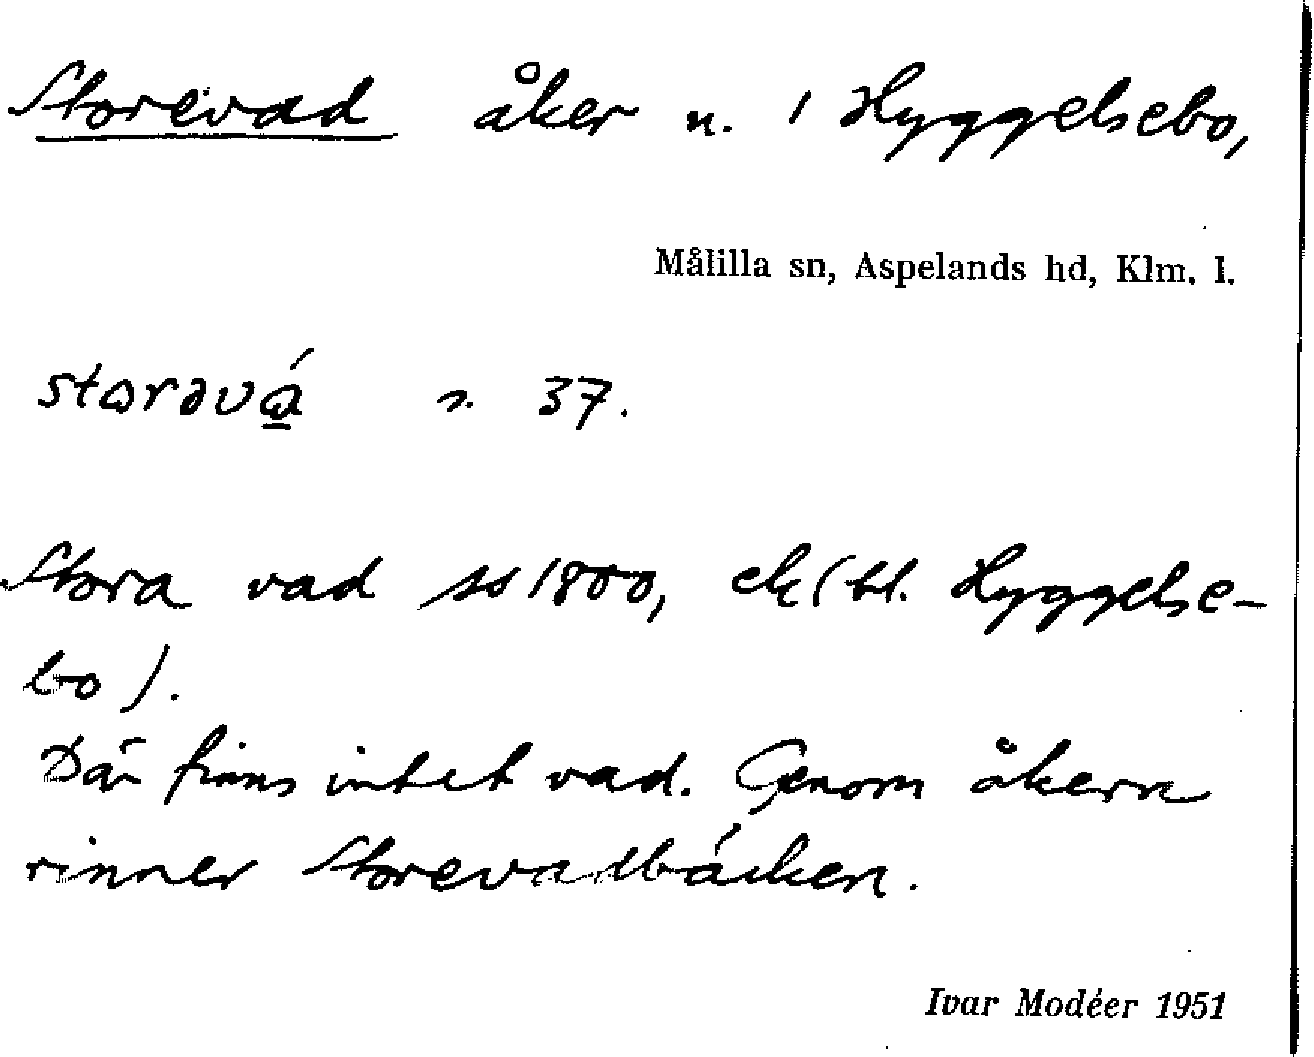 Storevad åker n. i Hyggelsebo,
Målilla sn, Aspelands hd, Klm. l.
37.
Stora vad ss 1800, ek (bl. Hyggelse-
bo).
Där finns intet vad. Genom åkern
rinner Storevadbäcken.
Ivar Modéer 1951